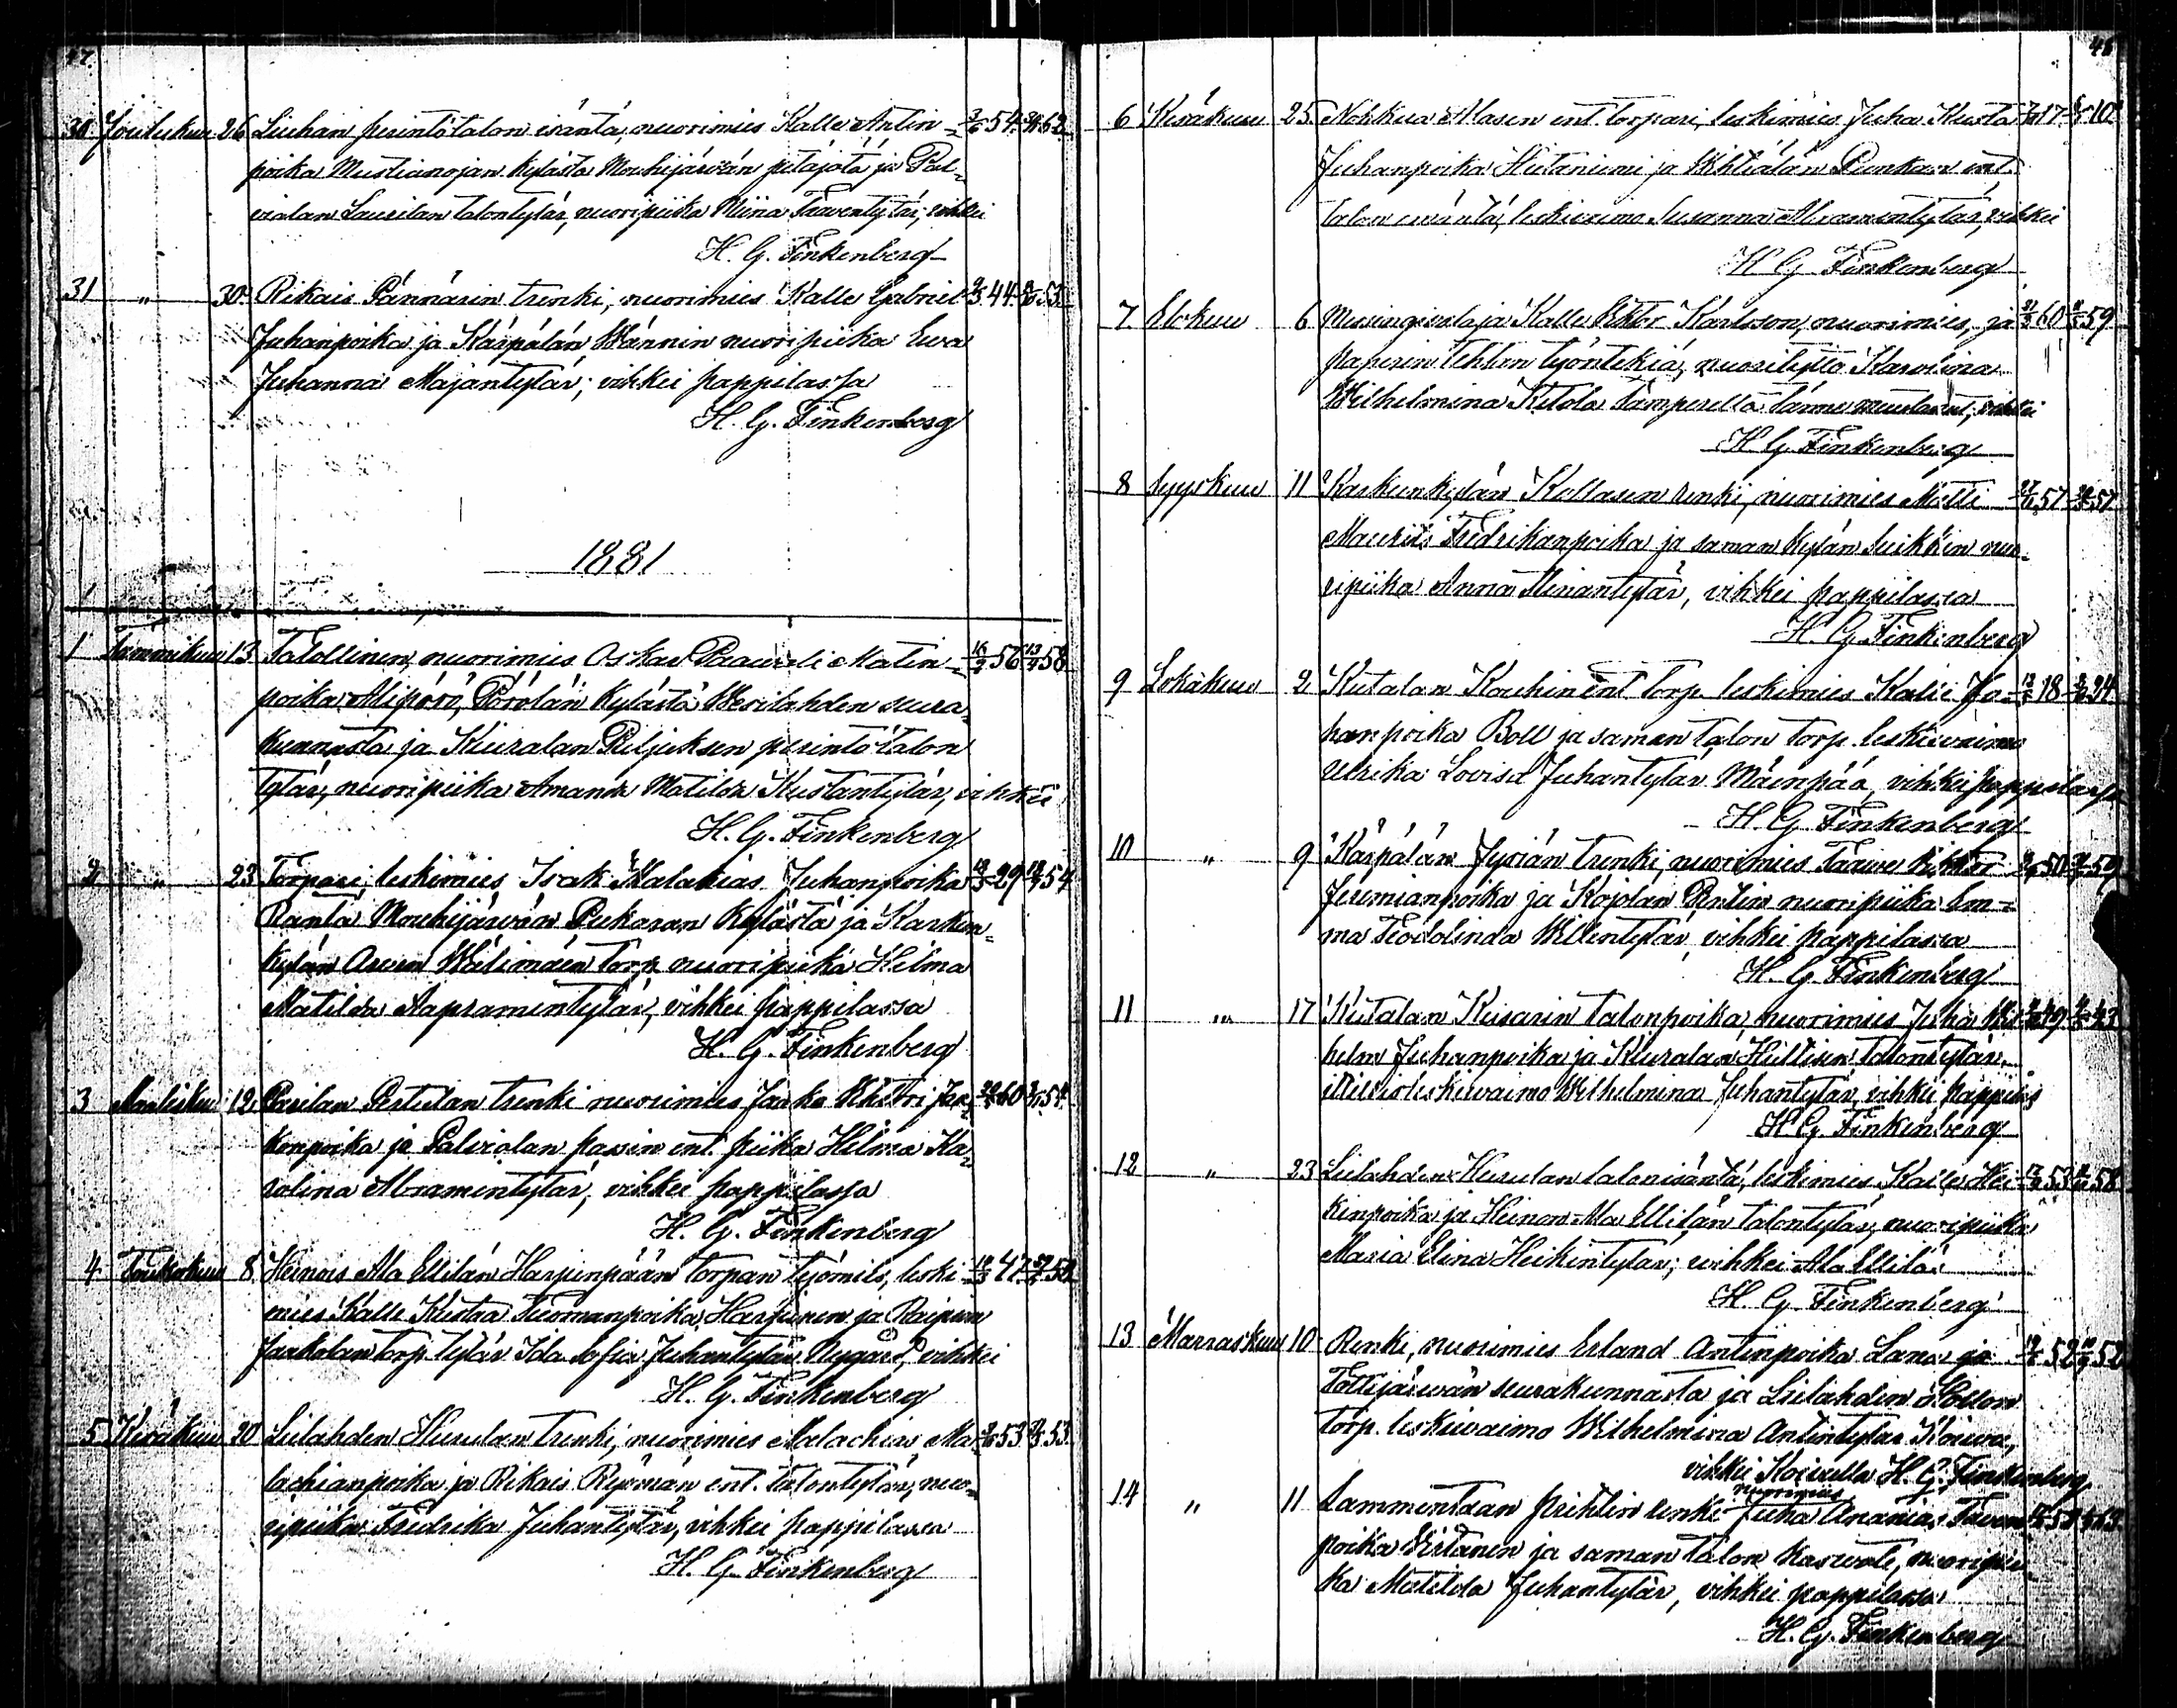 47.
30 Joulukuu 26 Liuhan perintötalon isäntä, nuorimies Kalle Antin-
poika Mustianojan kylästä Mouhijärwän pitäjätä ja Pal-
vialan Laurilan talontytär, nuoripiika Miina Taaventytär; vihkei
H. G. Finkenberg
31 " 30 Rikais Pännärin trenki, nuorimies Kalle Gabriel 44 53
Juhanpoika ja Kärpälän Männin nuoripiika Eva
Juhanna Majantytär; vihkei pappilassa
H. G. Finkenberg
1881
1 Tammikuu 13 Talollinen, nuorimies Oskar Paawali Matin- 56 58
poika Alipörö, Pörölän kylästä Wesilahden seura-
kunnasta ja Kiuralan Riljuksen perintö talon
tytär, nuoripiika Amanda Matilda Kustantytär, vihkei
H. G. Finkenberg
2 " 23 Torpari, leskimies Isak Malakias Juhanpoika 29 54
Ranta Mouhijärwän Pukaran kylästä ja Karkun-
kylän Wälimäen torp. nuoripiika Hilma
Matilda Aapramintytär, vihkei pappilassa
H. G. Finkenberg
3 Maalisku 12 Pertulan trenki nuorimies Jaakko Jaa- 60 54
konpoika ja Palvialan ent. piika Hilma Ka-
rolina Abramintytär, vihkei pappilassa
H. G. Finkenberg
4 Toukokuu 8 Heinois Ala Ellilän Harjunpään torpan työmiis, leski- 47
mies Kalle Kustaa Tuomanpoika Harjunen ja Raipion
Jaakolan torp. tytär Ida Sofia Juhantytär Nygård, vihkei
H. G. Finkenberg
5 Kesäkuu 20 Liilahden Hiurulan trenki, nuorimies Malachias Ma- 53 53
lachianpoika ja Rikais ent. talontytär, nuo-
ripiika Fredrika Juhantytär, vihkei pappilassa
H. G. Finkenberg
48
6 Kesäkuu 25 Nohkua Alasen ent. torpari, leskimies Juha Kusta 17 10
Juhanpoika Hietaniemi ja Punkan ent.
talon emäntä, leskivaimo Susanna Abramintytär, vihkei
H. G. Finkenberg
7 Elokuu 6 Messingivalaja Kalle Viktor Karlsson, nuorimies, ja 60 59
paperin tehtan työntekiä, nuorityttö Karolina
Wilhelmina Ketola Tamperella tänne vihkei
H. G. Finkenberg
8 Syyskuu 11 Karkunkylän Kollasen renki, nuorimies Matti 57 57
Mauriits Fredrikanpoika ja saman kylän nuo-
ripiika Anna Miinantytär, vihkei pappilassa
H. G. Finkenberg
9 Lokakuu 2 Kutalan Kouhin ent torp. leskimies Kalle Ju- 18 24
hanpoika Boll ja saman talon torp. leskivaimo
Ulrika Lovisa Juhantytär Mäenpää, vihkei pappilassa
H. G. Finkenberg
10 " 9 Kärpälän Jyriän trenki, nuorimies Taawe Viktor 50 59
Jeremianpoika ja Kojolan Pentin nuoripiika Em-
ma Teodolinda Willentytär, vihkei pappilassa
H. G. Finkenberg
11 " 17 Kutalan Keisarin talonpoika, nuorimies Juha Wil- 49 43
helm Juhanpoika ja Kiuralan talontytär,
leskiwaimo Wilhelmina Juhantytär, vihkei pappilas
H. G. Finkenberg
12 " 23 Liilahden Hiurulan talonisäntä, leskimies, Kalle Hei- 53 58
kinpoika ja Heinoon Ala Ellilän talontytär, nuoripiika
Maria Elina Heikintytär; vihkei Ala Ellilä
H. G. Finkenberg
13 Marraskuu 10 Renki, nuorimies Erland Antinpoika Lana ja 52 52
Tottijärwän seurakunnasta ja Liilahden
torp. leskiwaimo Wilhelmina Antintytär Koiwu,
vihkei Koivulla H. G. Finkenberg
14 " 11 Lammentaan Prihtin renki nuorimies Juha Ananias Taven- 63
poika Virtanen ja saman talon kaswate, nuoripii-
ka Matilda Juhantytär, vihkei pappilassa
H. G. Finkenberg